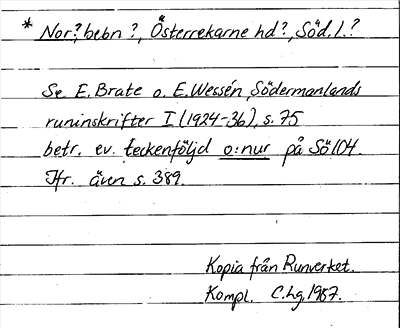 * Nor?, bebn ?, Österrekarne hd?, Söd. l.?
Se E. Brate o. E. Wessén, Södermanlands
runinskrifter I (1924-36), s. 75
betr. ev. teckenföljd o:nur på Sö104.
Jfr. även s. 389.
Kopia från Runverket.
Kompl. C.hg, 1987.